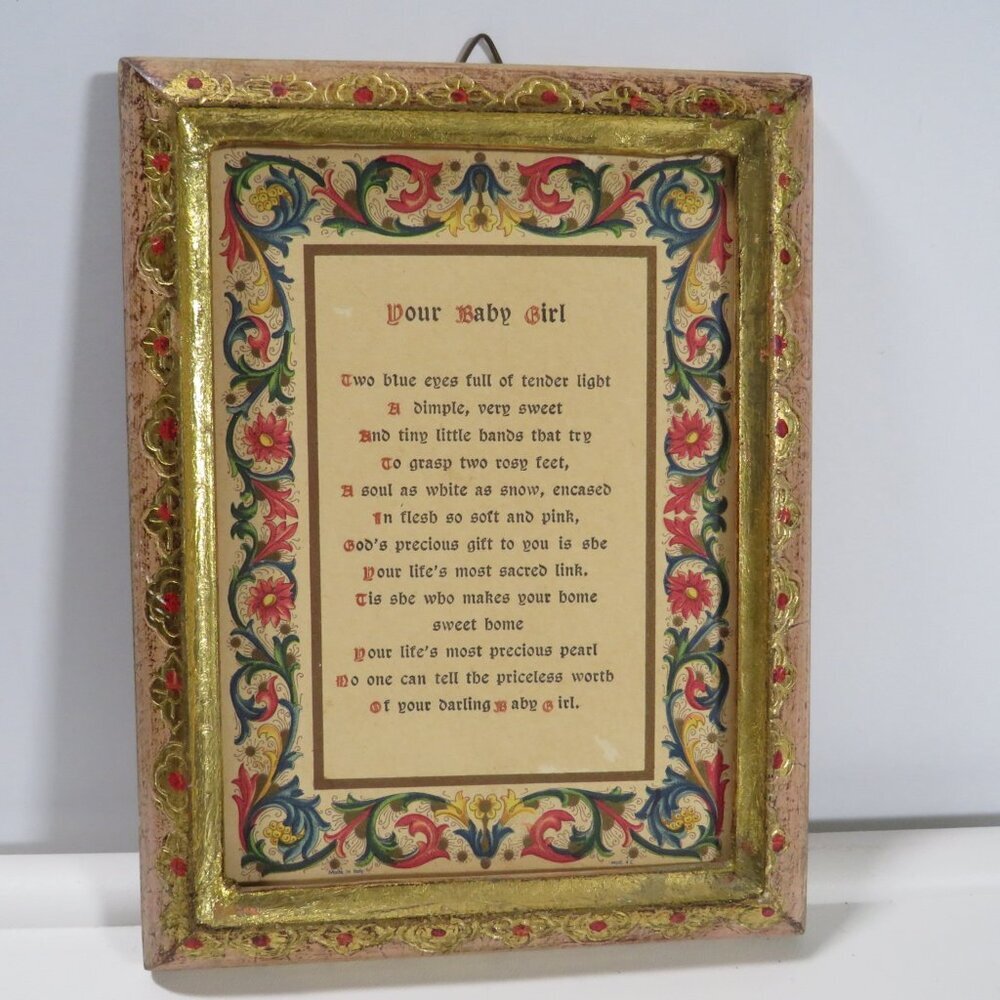 Your Baby Girl
Two blue eyes full of tender light
A dimple, very sweet
And tiny little hands that try
To grasp two rosy feet,
A soul as white as snow, encased
In flesh so soft and pink,
God's precious gift to you is she
Your life's most sacred link.
Tis she who makes your home
sweet home
Your life's most precious pearl
No one can tell the priceless worth
Of your darling Baby Girl.
Made in Italy